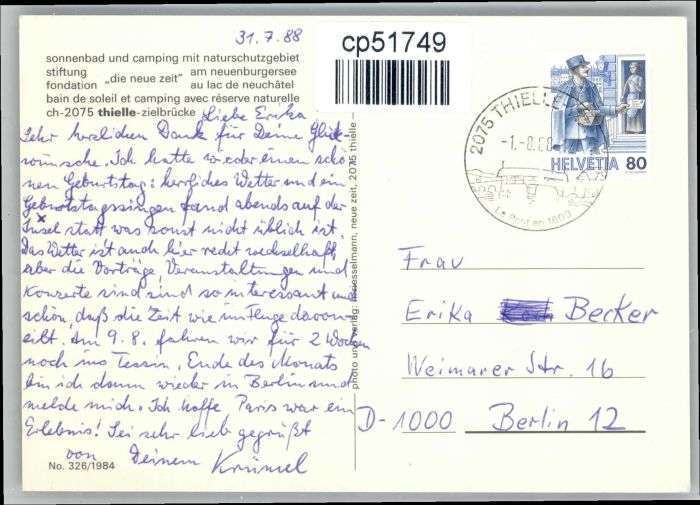 31.7.88
cp51749
sonnenbad und camping mit naturschutzgebiet
stiftung „die neue zeit" am neuenburgersee
fondation au lac de neuchâtel
bain de soleil et camping avec réserve naturelle
ch-2075 thielle-zielbrücke
Liebe Erika
Sehr herzlichen Dank für Deine Glück-
wünsche. Ich hatte wieder einen schö-
nen Geburtstag: herrliches Wetter und ein
Geburtstagssingen fand abends auf der
Insel statt was sonst nicht üblich ist.
Das Wetter ist auch hier recht wechselhaft,
aber die Vorträge, Veranstaltungen und
Konzerte sind sind so interessant und
schön, daß die Zeit wie im Fluge davon
eilt. Am 9.8. fahren wir für 2 Wochen
noch ins Tessin. Ende des Monats
bin ich dann wieder in Berlin und
melde mich. Ich hoffe Paris war ein
Erlebnis! Sei sehr lieb gegrüßt
von Deinem Krümel
No. 326/1984
photo und verlag: neue zeit, 2075 thielle
2075 THIELLE
-1.-8.88
Le Pont en 1603
HELVETIA 80
Frau
Erika Becker
Weimarer Str. 16
D-1000 Berlin 12